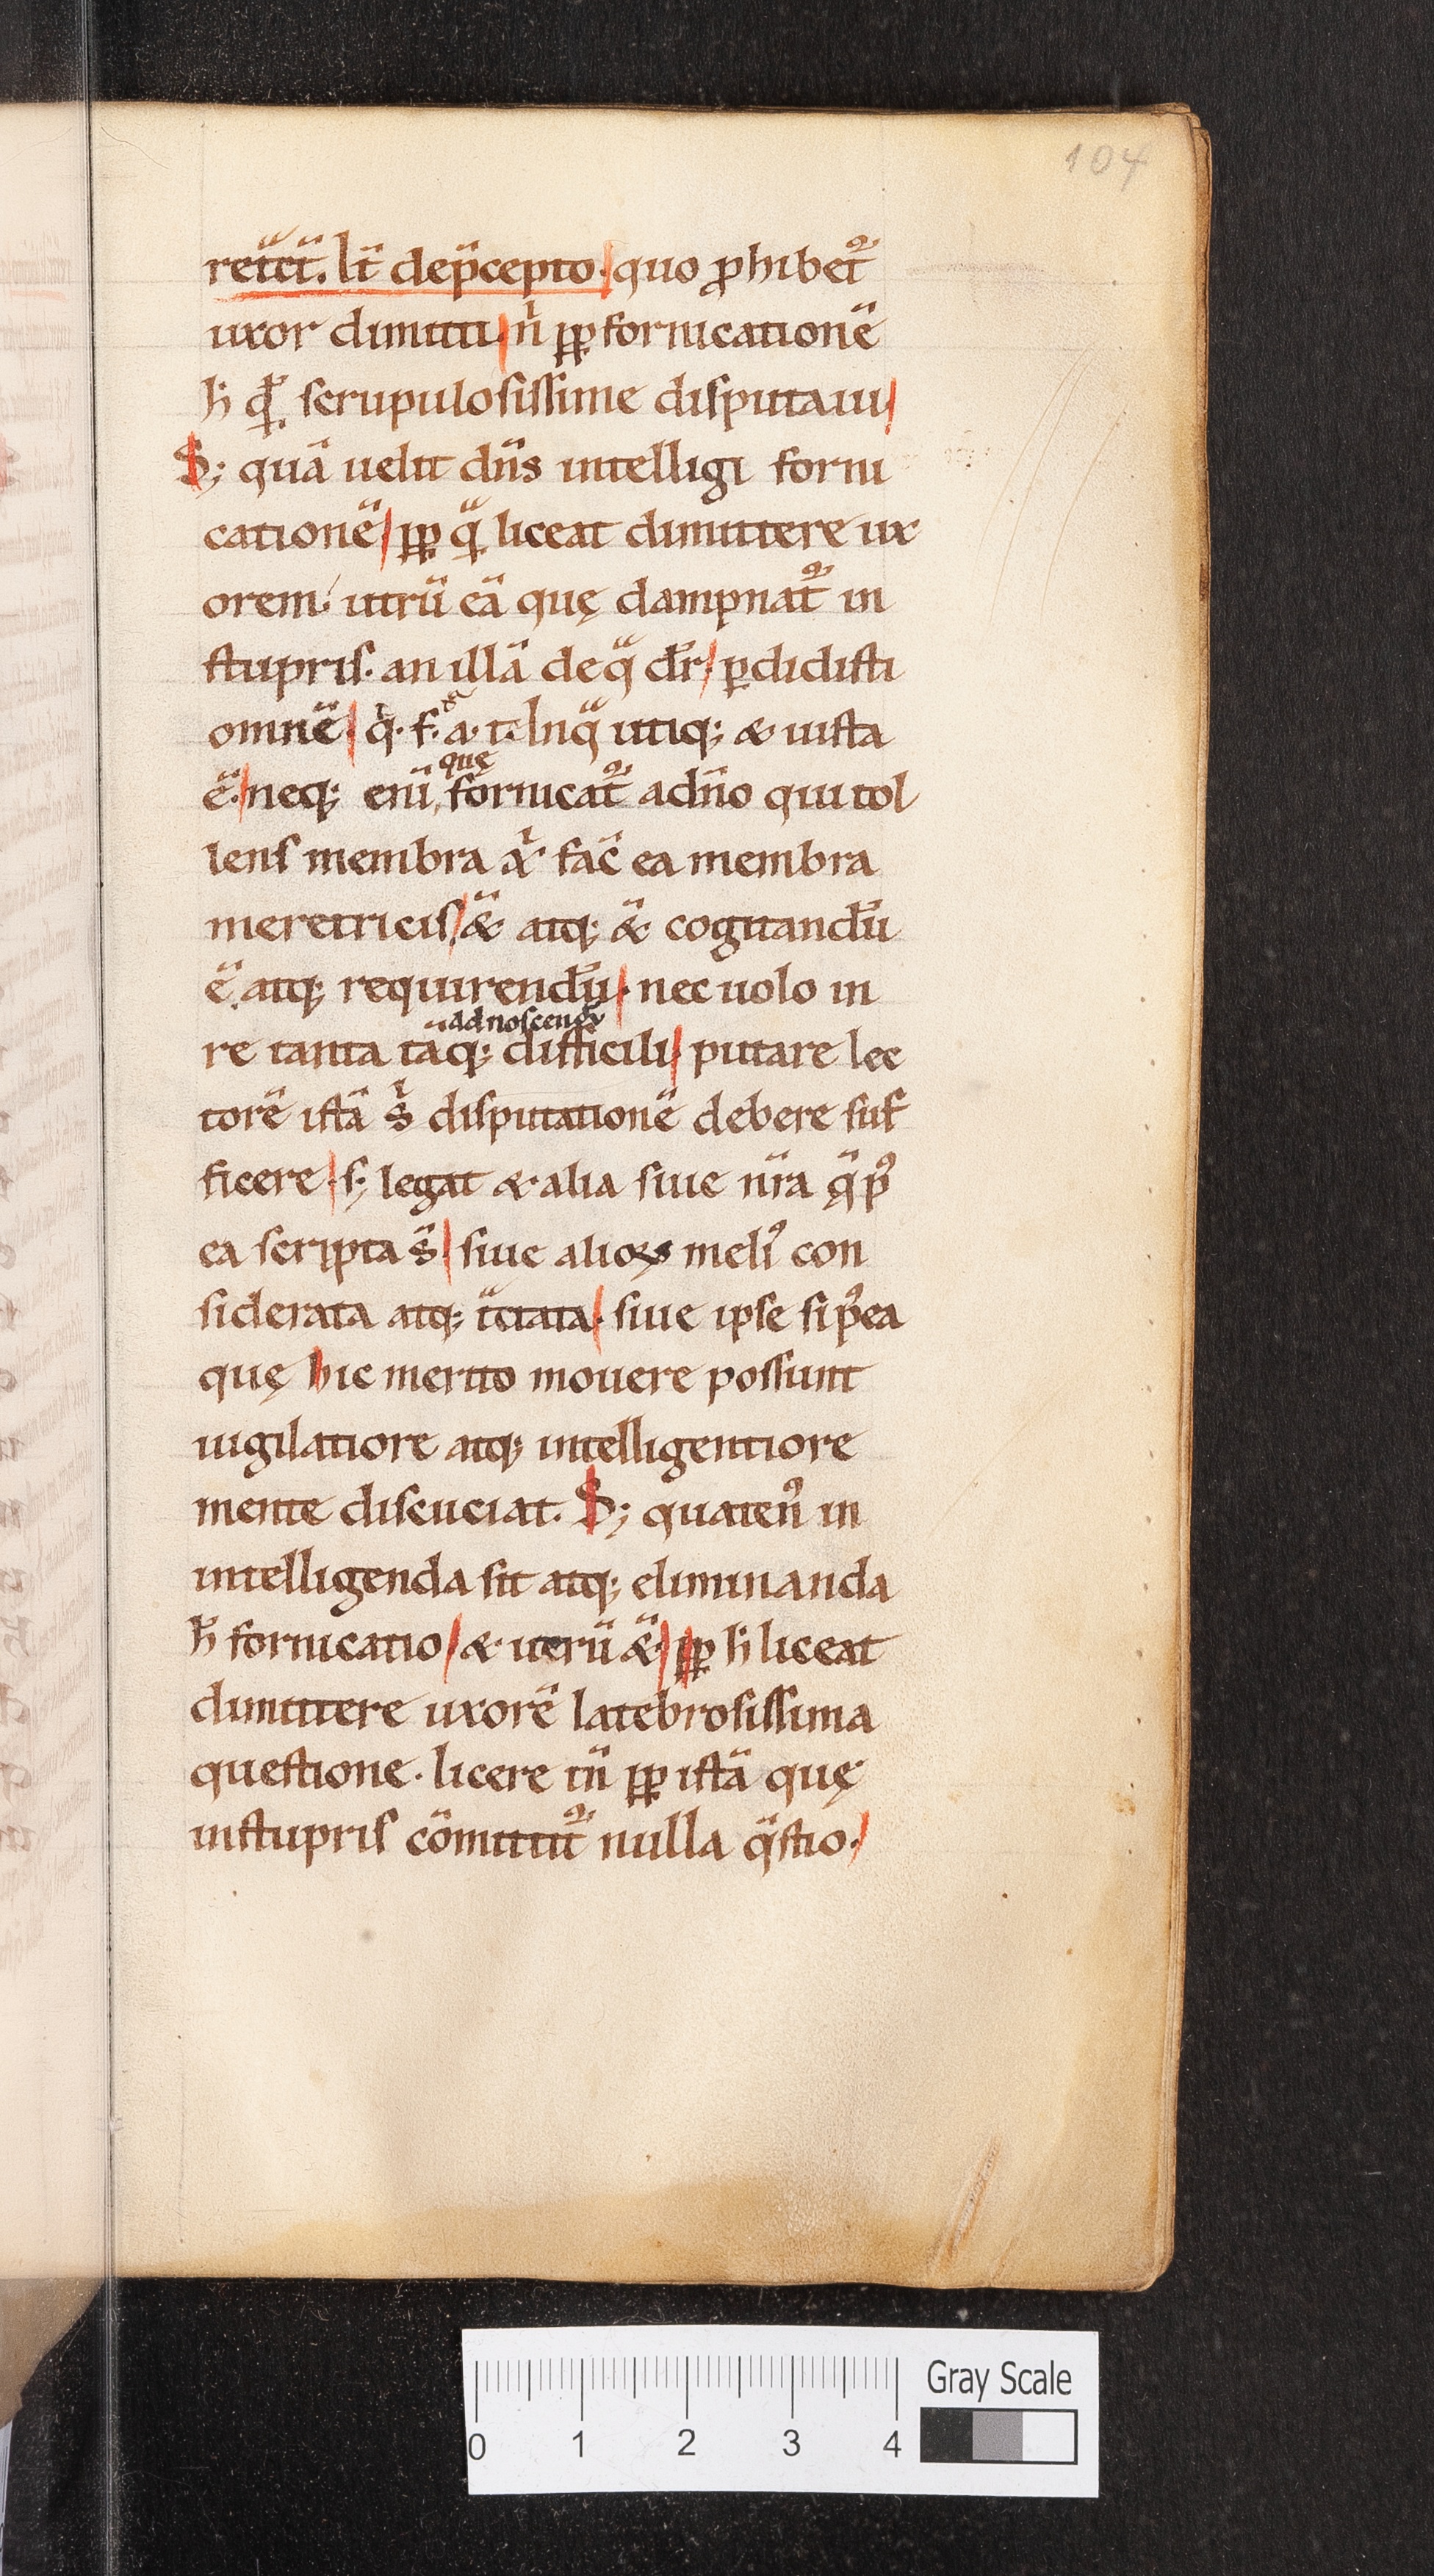 104
retc̄t̄. lt̄ dep̄cepto. quo ꝓhibet᷑
uxor dimitti. n̄ ꝓp fornicationē
h̄ qͣ scrupulosissime disputaui
S; quā uelit dn̄s intelligi forni
cationē ꝓp qͣ liceat dimittere ux
orem. utrū eā quę dampnat᷑ in
stupris. an illā deqͣ dr̄ ꝑdidisti
omnē. q̇. f. a. t. Inqͣ utiq; & iusta
ē. neq; eni̅ quę fornicat᷑ adn̄o qui tol
lens membra xͥ fac̄ ea membra
meretricis. &̄ atq; &̄ cogitandū
ē atq; requirendū. nec uolo in
ad noscendū
re tanta tāq; difficili. putare lec
torē istā sͥ disputationē debere suf
ficere. s; legat & alia siue nr̄a qͣ pꝰ
ea scripta s̄ siue alioꝝ meliꝰ con
siderata atq; tͣctata. siue ipse si pꝰea
quę hic merito mouere possunt
uigilatiore atq; intelligentiore
mente discuciat. S; quatenꝰ in
intelligenda sit atq; eliminanda
h̄ fornicatio. & uerū &̄. ꝓp h̄ liceat
dimittere uxorē latebrosissima
questione. licere tn̄ ꝓp istā quę
instupris cōmittit᷑ nulla qͣstio.
Gray Scale
0 1 2 3 4